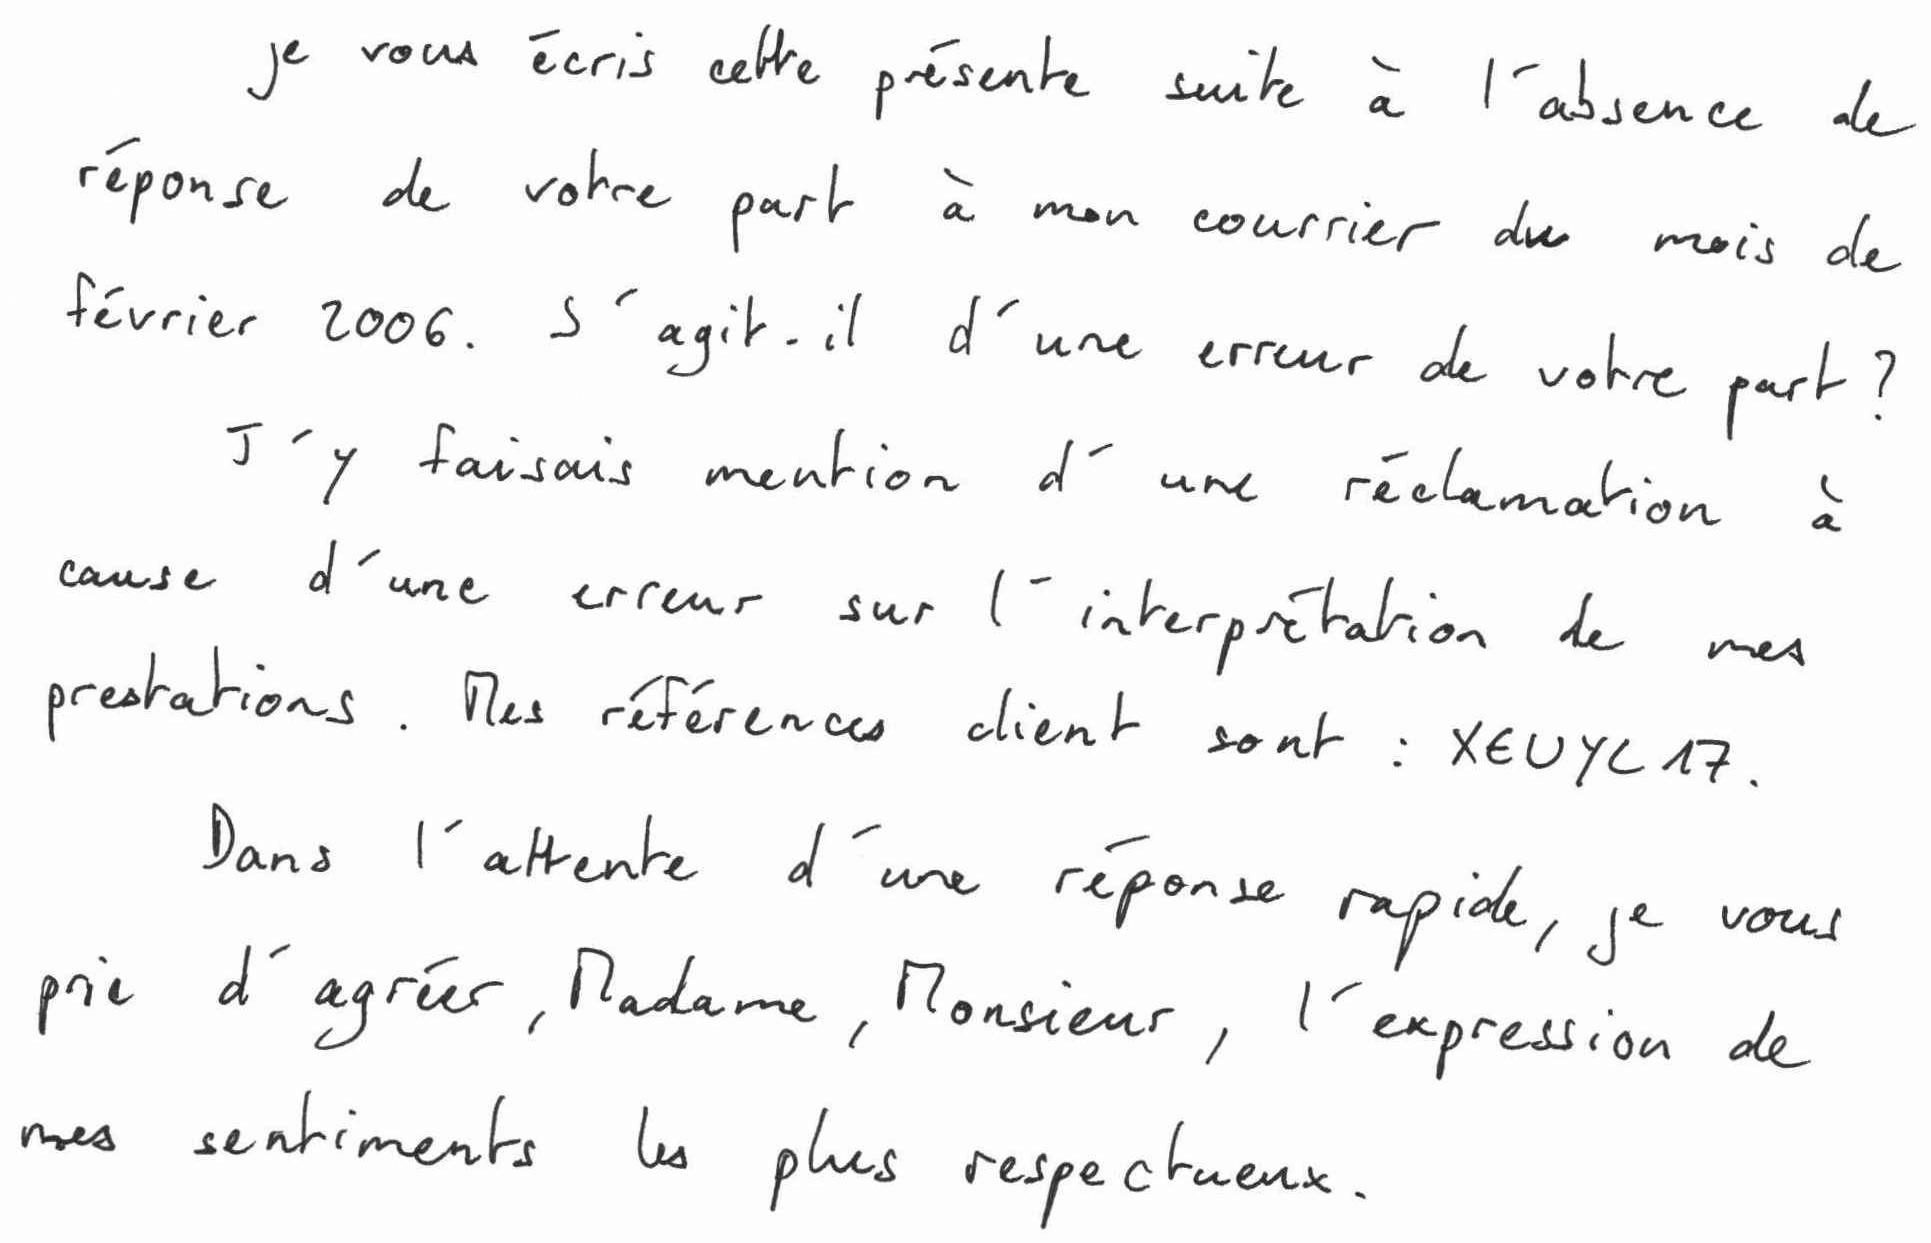 je vous écris cette présente suite à l'absence de
réponse de votre part à mon courrier du mois de
février 2006. S'agit-il d'une erreur de votre part ?
J'y faisais mention d'une réclamation à
cause d'une erreur sur l'interprétation de mes
prestations. Mes références client sont : XEUYL17.
Dans l'attente d'une réponse rapide, je vous
prie d'agréer, Madame, Monsieur, l'expression de
mes sentiments les plus respectueux.